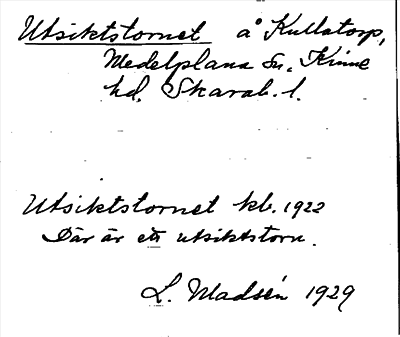 Utsiktstornet å Kullatorp,
Medelplana sn, Kinne
hd, Skarab. l.
Utsiktstornet kb. 1922
Där är ett utsiktstorn.
L. Madsén 1929